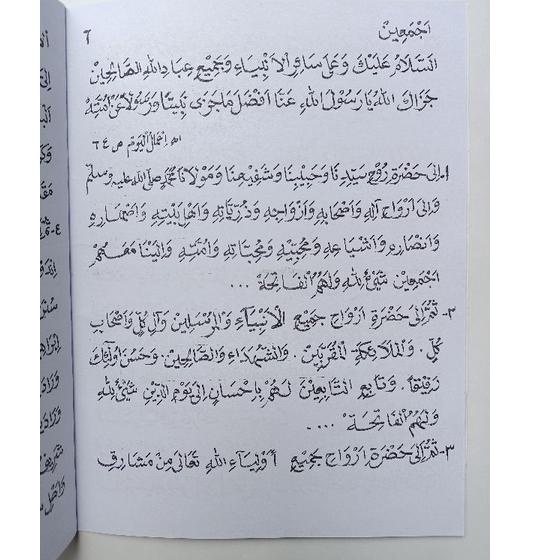 اَجْمَعِيْنَ ٦
اَلسَّلَامُ عَلَيْكَ وَعَلَى سَائِرِ الْاَنْبِيَاءِ وَبِجَمِيْعِ عِبَادِ اللهِ الصَّالِحِيْنَ
جَزَاكَ اللهُ يَارَسُوْلَ اللهِ عَنَّا اَفْضَلَ مَاجَزَى نَبِيًّا وَرَسُوْلًا عَنْ اُمَّتِهِ
اه اعمال اليوم ص ٦٤
١- اِلَى حَضْرَةِ رُوْحِ سَيِّدِنَا وَحَبِيْبِنَا وَشَفِيْعِنَا وَمَوْلَانَا مُحَمَّدٍ صلى الله عليه وسلم
وَاِلَى اَرْوَاحِ آلِهِ وَاَصْحَابِهِ وَاَزْوَاجِهِ وَذُرِّيَّاتِهِ وَاَهْلِ بَيْتِهِ وَاَصْهَارِهِ
وَاَنْصَارِهِ وَاَشْيَاعِهِ وَمُحِبِّيْهِ وَمُحِبَّاتِهِ وَاُمَّتِهِ وَاِلَيْنَا مَعَهُمْ
اَجْمَعِيْنَ شَيْئٌ لِلهِ وَلَهُمُ الْفَاتِحَةْ ...
٢- ثُمَّ اِلَى حَضْرَةِ اَرْوَاحِ جَمِيْعِ الْاَنْبِيَاءِ وَالْمُرْسَلِيْنَ وَآلِ كُلٍّ وَاَصْحَابِ
كُلٍّ . وَالْمَلَائِكَةِ الْمُقَرَّبِيْنَ . وَالشُّهَدَاءِ وَالصَّالِحِيْنَ . وَحَسُنَ اُولٰئِكَ
رَفِيْقًا . وَتَابِعِ التَّابِعِيْنَ لَهُمْ بِاِحْسَانٍ اِلَى يَوْمِ الدِّيْنِ شَيْئٌ لِلهِ
وَلَهُمُ الْفَاتِحَةْ ....
٣- ثُمَّ اِلَى حَضْرَةِ اَرْوَاحِ جَمِيْعِ اَوْلِيَاءِ اللهِ تَعَالَى مِنْ مَشَارِقِ